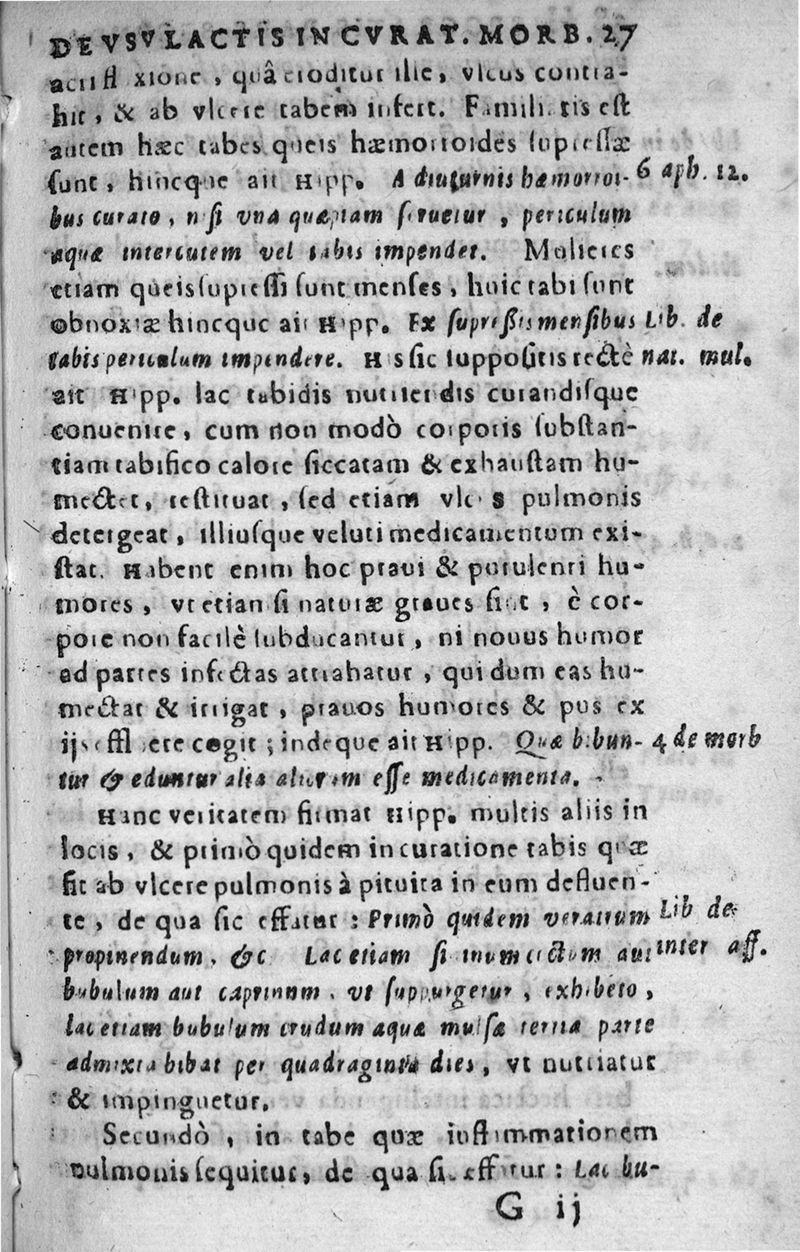 DE VSV LACTIS IN CVRAT. MORB. 27
quâ eroditur ille, vlcus contra-
hit, & ab vlcere tabem infert. Familiaris est
autem hæc tabes queis hæmorroides supressæ
sunt, hincque ait Hipp. A diuturnis hæmorroi- 6 aph. 12.
bus curato, nisi vna quæpiam seruetur, periculum
aquæ intercutem vel tabis impendet. Mulieres
etiam queis supressi sunt menses, huic tabi sunt
obnoxiæ hincque ait Hipp. Ex supressis mensibus Lib. de
tabis periculum impendere. His sic suppositis rectè nat. mul.
ait Hipp. lac tabidis nutriendis curandisque
conuenire, cum non modò corporis substan-
tiam tabifico calore siccatam & exhaustam hu-
mectet, restituat, sed etiam vlcus pulmonis
detergeat, illiusque veluti medicamentum exi-
stat. Habent enim hoc praui & purulenti hu-
mores, vt etian si naturæ graues sint, è cor-
pore non facilè subducantur, ni nouus humor
ad partes infectas attrahatur, qui dum eas hu-
mectat & irrigat, prauos humores & pus ex
ijs effluere cogit; indeque ait Hipp. Quæ bibun- 4 de morb
tur & eduntur alia aliorum esse medicamenta.
Hanc veritatem firmat Hipp. multis aliis in
locis, & primò quidem in curatione tabis quæ
fit ab vlcere pulmonis à pituita in eum defluen-
te, de qua sic effatur: Primò quidem veratrum Lib de
propinendum, &c Lac etiam si tum aut inter aff.
bubulum aut caprinum, vt suppurgetur, exhibeto,
lac etiam bubulum crudum aquæ mulsæ tertia parte
admixta bibat per quadraginta dies, vt nutriatur
& impinguetur.
Secundò, in tabe quæ inflammationem
pulmonis sequitur, de qua sic effatur: Lac bu-
G ij